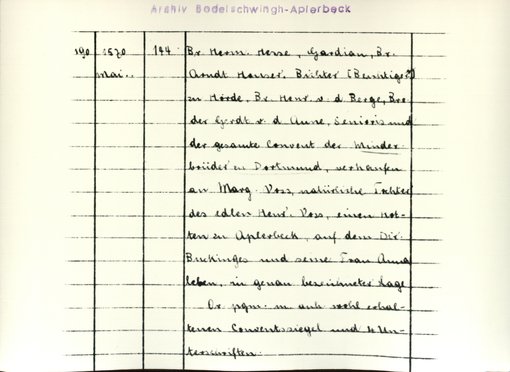 Archiv Bodelschwingh-Aplerbeck
190 1570 144 Br. Herm. Hesse, Gardian, Br.
Mai.. Arndt Hauser, Bichter (Beichtiger?)
zu Hörde, Br. Henr. v. d. Berge, Bro
der Gerdt v. d. Anne, Senioris und
der gesamte Convent der Minder
brüder in Dortmund, verkaufen
an Marg. Voss, natürliche Tochter
des edlen Henr. Voss, einen Kot-
ten zu Aplerbeck, auf dem Dir.
Buckinges und seine Frau Anna
leben, in genau bezeichneter Lage
Or. pgm. m. anh wohl erhal-
tenen Conventssiegel und 4 Un-
terschriften.